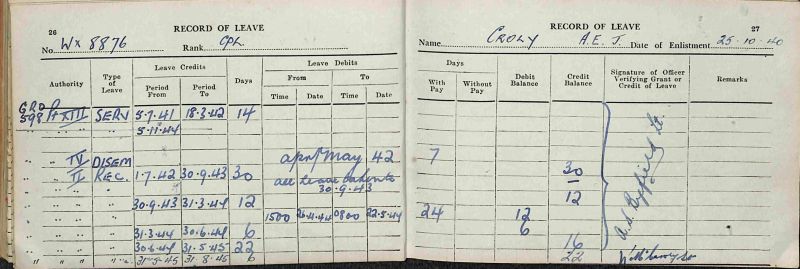 26 RECORD OF LEAVE
No. WX 8876 Rank CPL.
Authority Type of Leave Leave Credits Period From Period To Days Leave Debits From Time Date To Time Date
GRO
598 Pt XIII SERV 5.7.41 18.3.42 14
5.11.44
" " IV DISEM April May 42
" " II REC. 1.7.42 30.9.43 30 all leave
30.9.43
" " 30.9.43 31.3.44 12
" " 1500 26.4.44 0800 22.5.44
" " 31.3.44 30.6.44 6
" " 30.6.44 31.5.45 22
" " " 31.5.45 31.8.45 6
RECORD OF LEAVE 27
Name CROLY A.E.J. Date of Enlistment 25.10.40
Days With Pay Without Pay Debit Balance Credit Balance Signature of Officer Verifying Grant or Credit of Leave Remarks
7
30
12
24 12
6
16
22